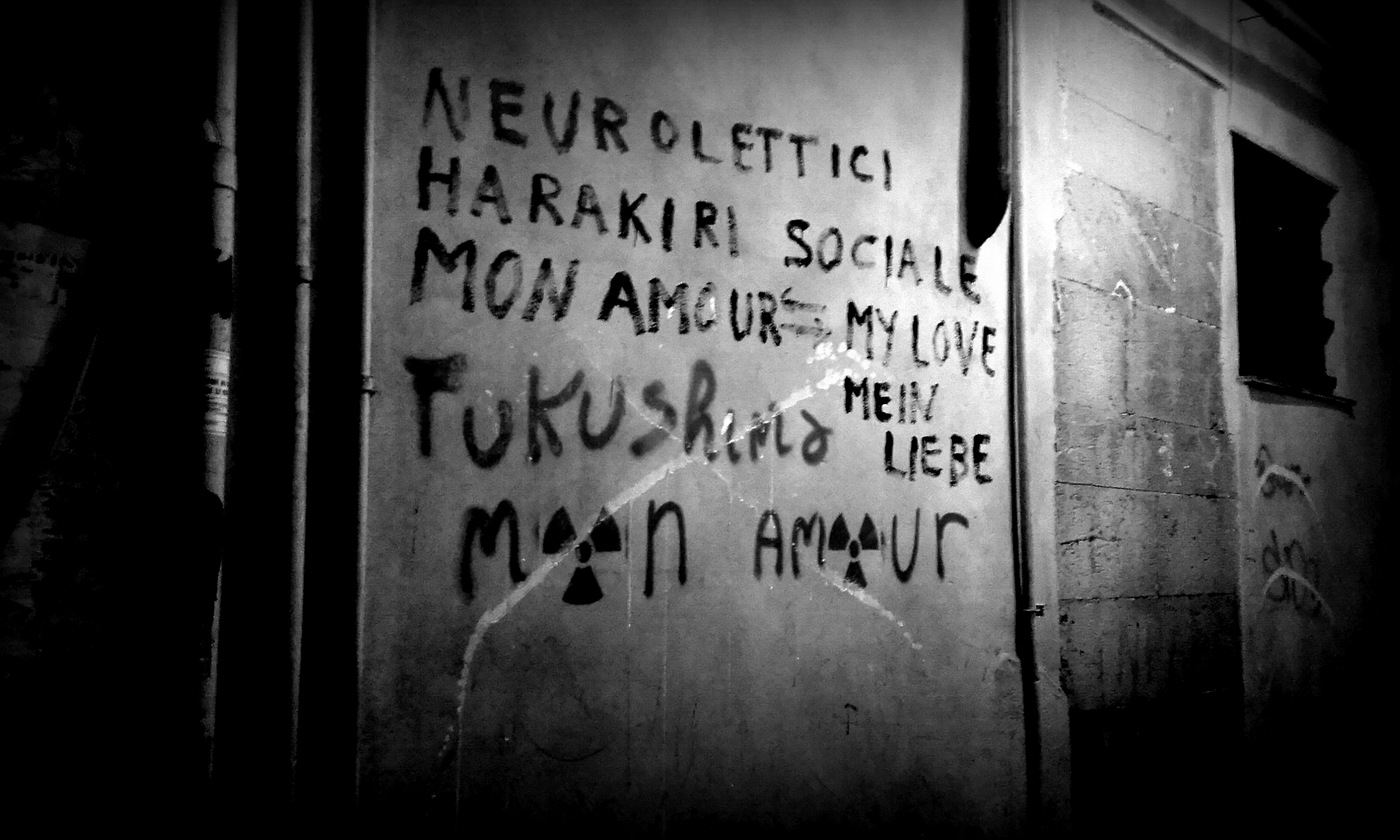 NEUROLETTICI
HARAKIRI SOCIALE
MON AMOUR ⇆ MY LOVE
MEIN
LIEBE
FUKUShima
m☢n Am☢ur